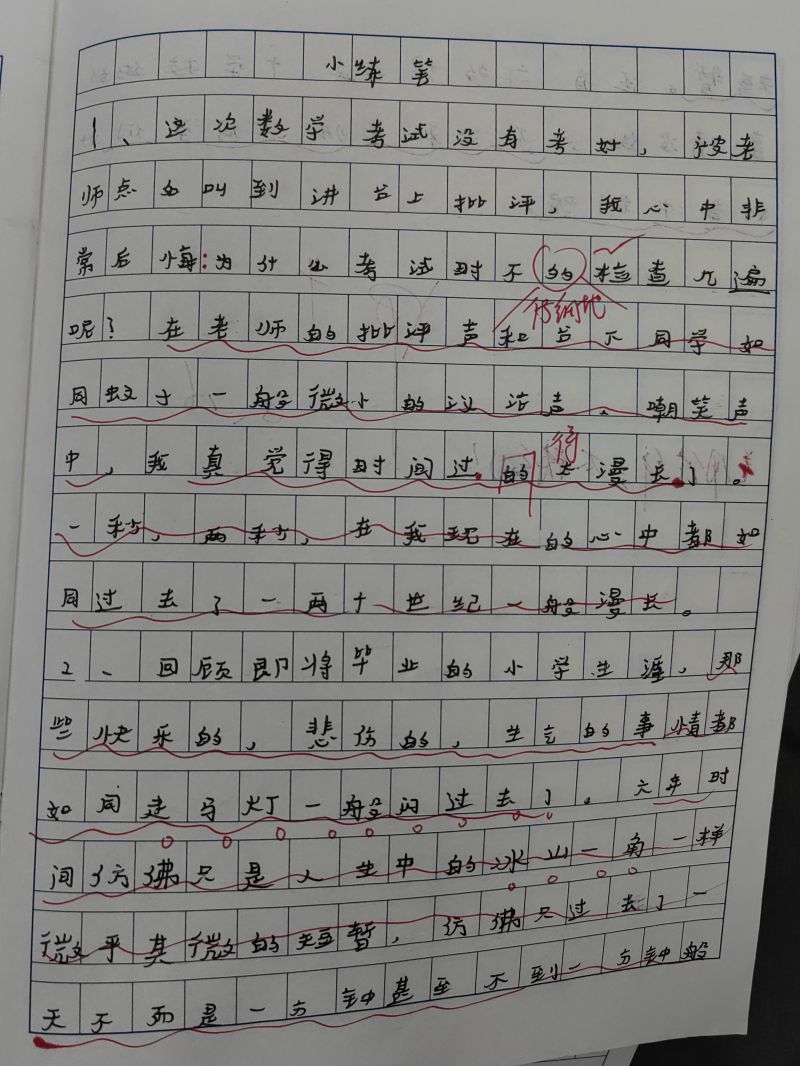 小练笔
1、这次数学考试没有考好，被老
师点名叫到讲台上批评，我心中非
常后悔:为什么考试时不的检查几遍
仔细地
呢？在老师的批评声和台下同学如
同蚊子一般微小的议论声、嘲笑声
得
中，我真觉得时间过的太漫长了。
一秒，两秒，在我现在的心中都如
同过去了一两十世纪一般漫长。
2、回顾即将毕业的小学生涯，那
些快乐的，悲伤的，生气的事情都
如同走马灯一般闪过去了。六年时
间仿佛只是人生中的冰山一角一样
微乎其微的短暂，仿佛只过去了一
天不而是一分钟甚至不到一分钟般